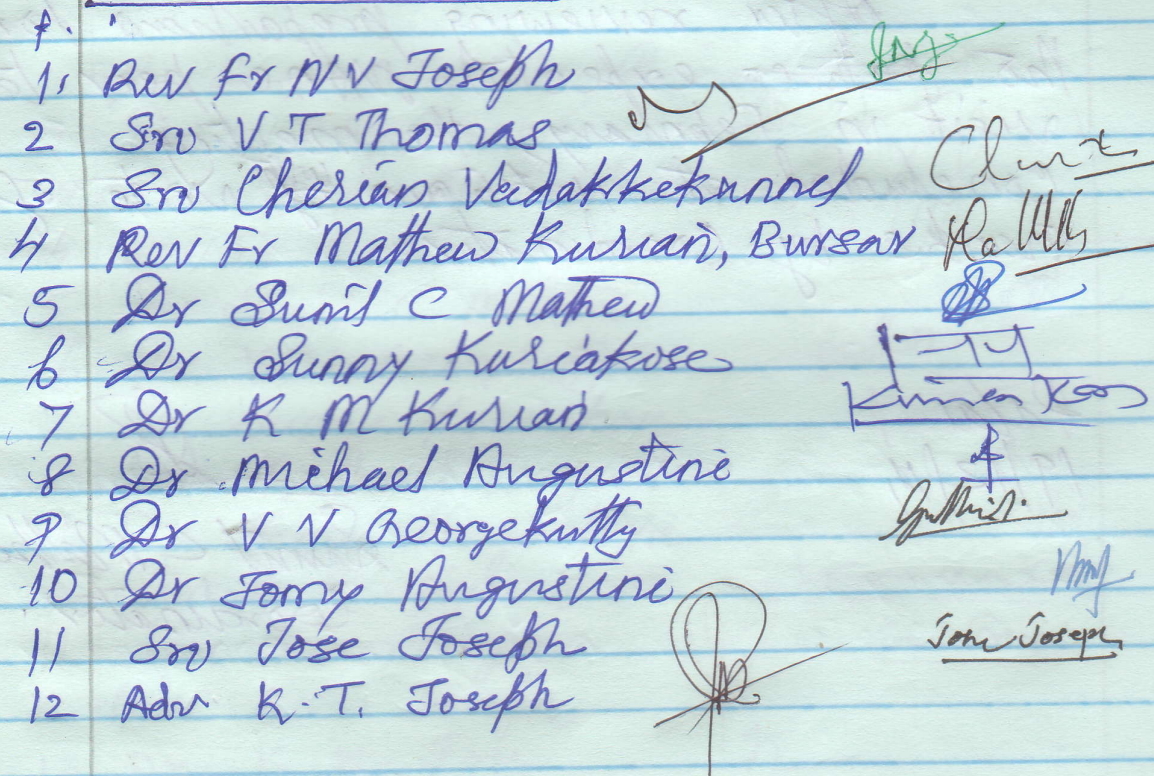 1. Rev Fr N V Joseph
2 Sri V T Thomas
3 Sri Cherian Vadakkekunnel
4 Rev Fr Mathew Kurian, Bursar
5 Dr Sunil C Mathew
6 Dr Sunny Kuriakose
7 Dr K M Kurian
8 Dr Michael Augustine
9 Dr V V Georgekutty
10 Dr Tomy Augustine
11 Sri Jose Joseph Jose Joseph
12 Adv K. T. Joseph